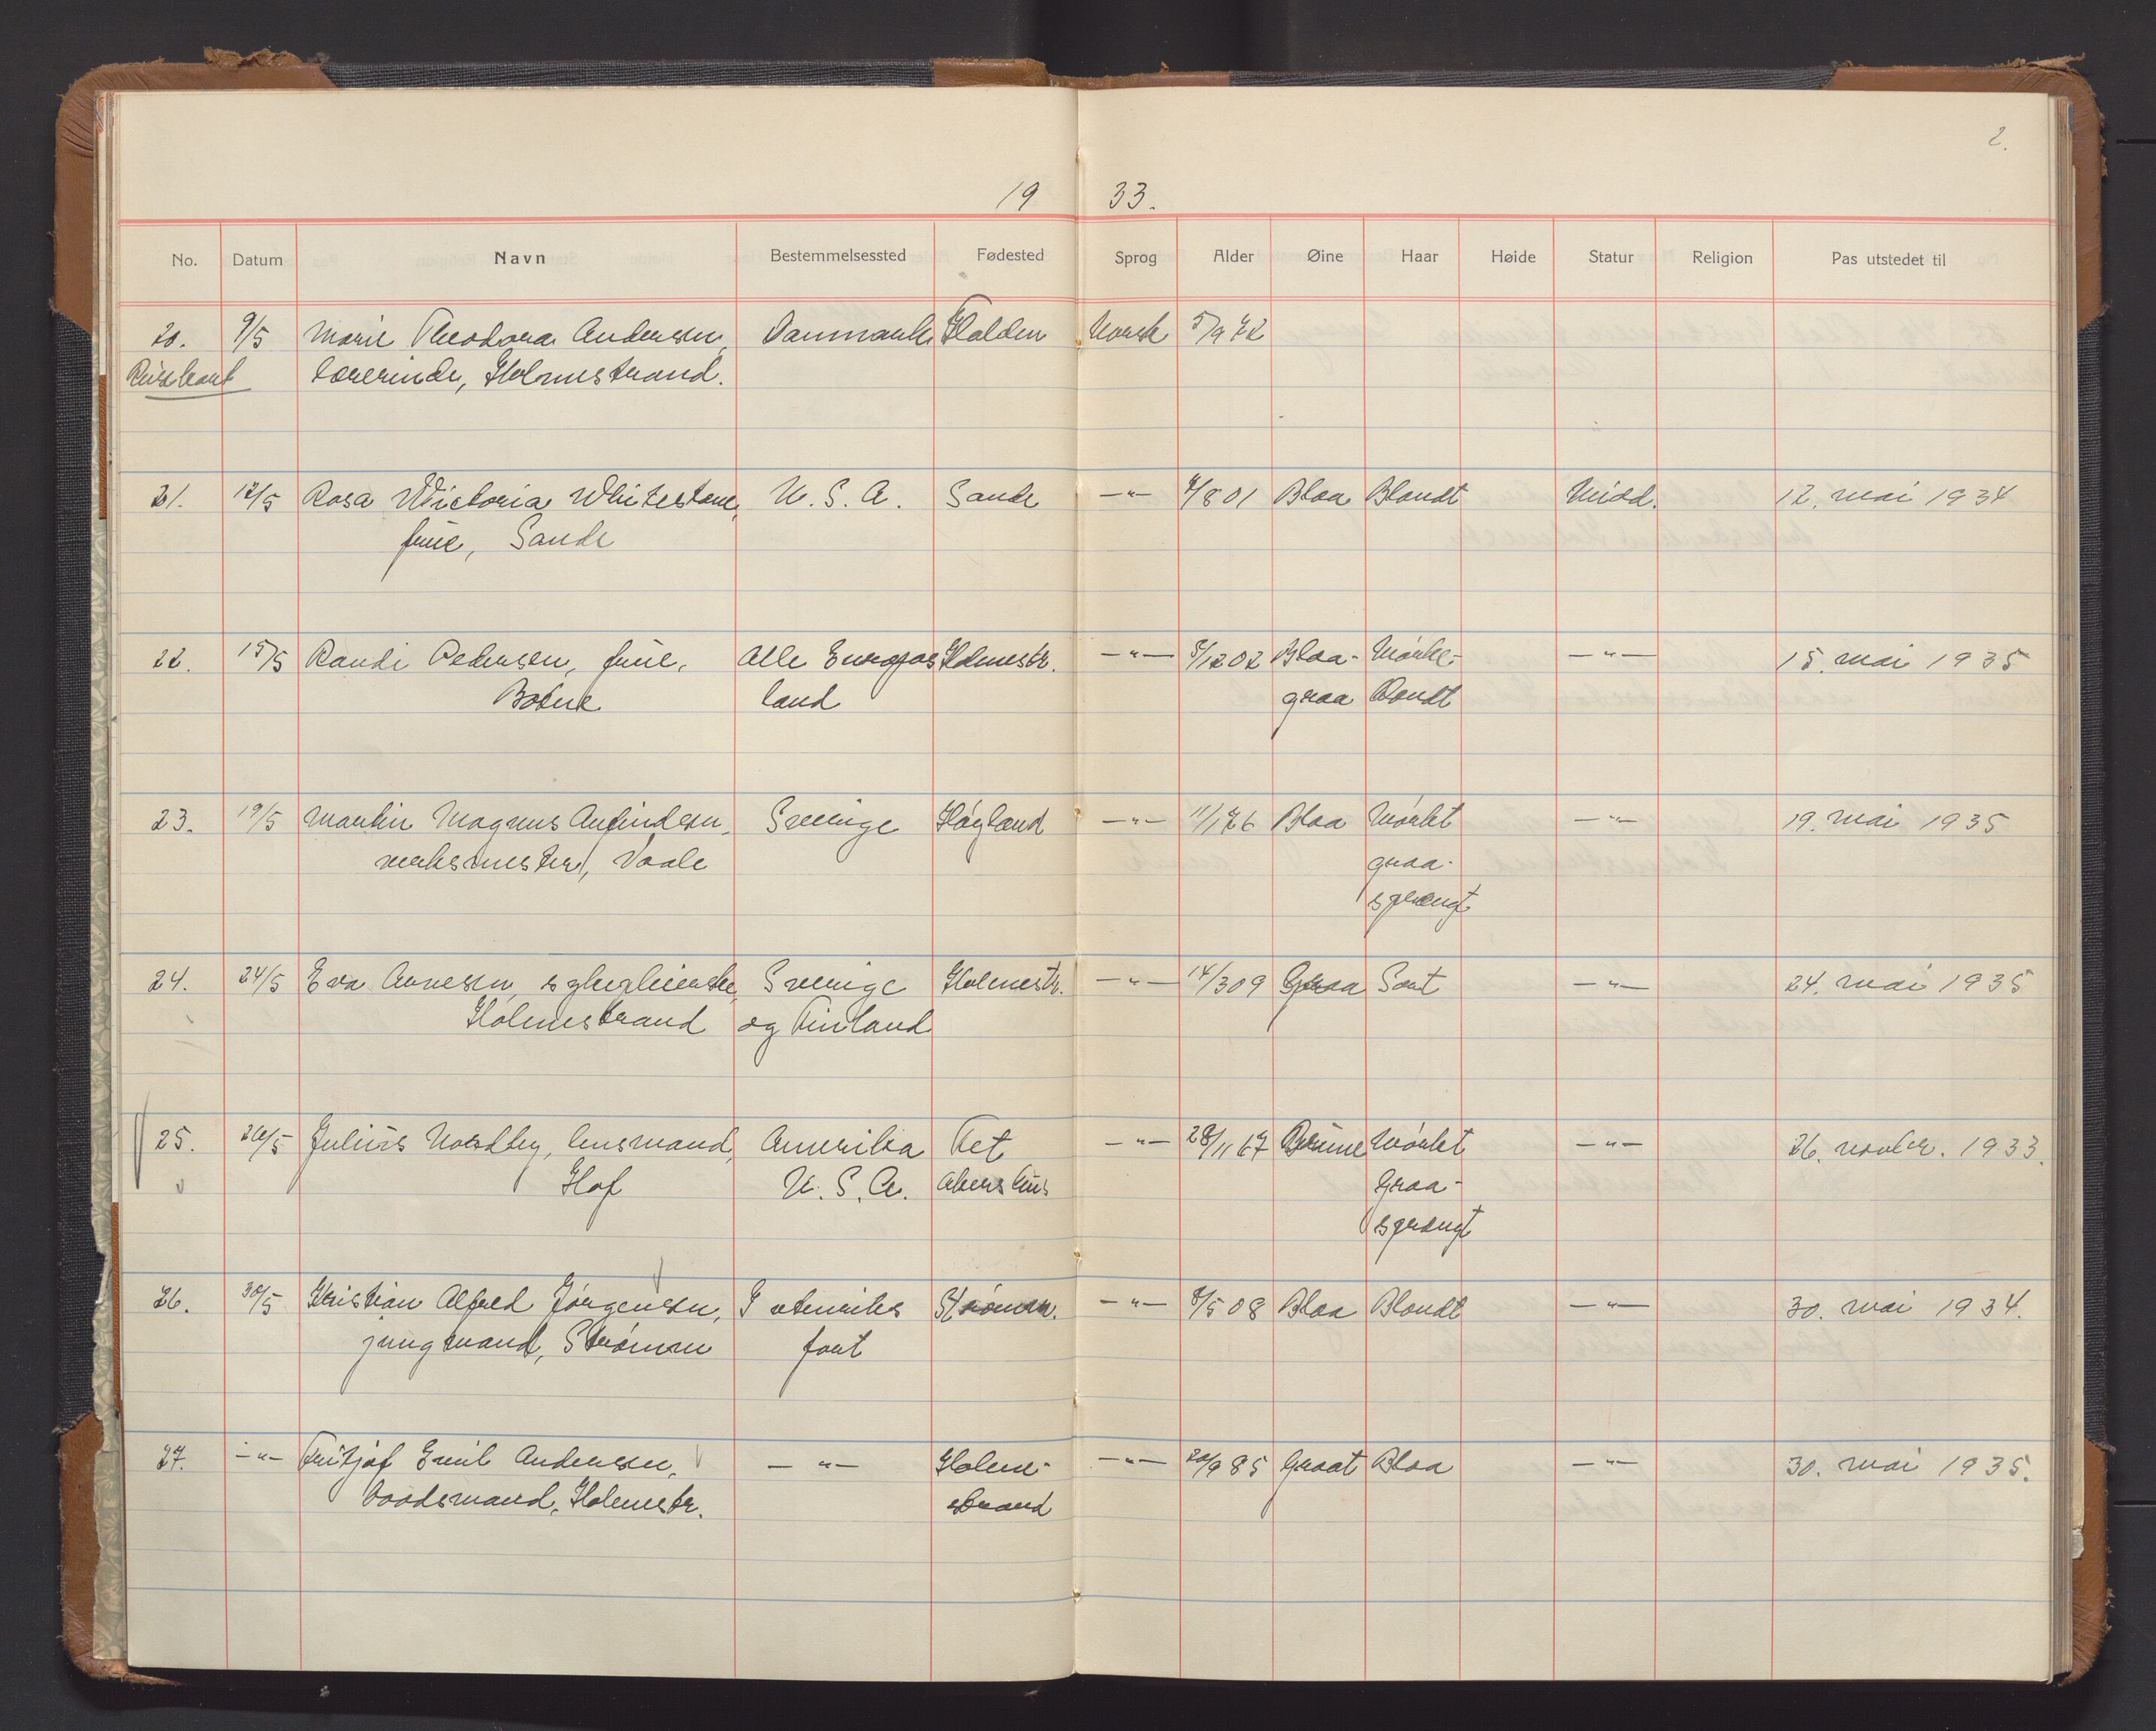 2.
19 33.
No. Datum Navn Bestemmelsessted Fødested Sprog Alder Øine Haar Høide Statur Religion Pas utstedet til
20. 9/5 Marie Theodora Andersen, Danmark Halden Norsk 5/9 72
Reisekort lærerinde, Holmestrand.
21. 12/5 Rosa Wictoria Whitestone, U. S. A. Sande —"— 4/8 01 Blaa Blondt Midd. 12. mai 1934
frue, Sande
22. 15/5 Randi Pedersen, frue, Alle Europas Holmestr. —"— 5/12 02 Blaa- Mørke- —"— 15. mai 1935
Botne land graa blondt
23. 19/5 Martin Magnus Anfindsen, Sverige Høyland —"— 11/1 76 Blaa Mørkt —"— 19. mai 1935
verksmester, Vaale graa-
sprengt
24. 24/5 Eva Arnesen, sykepleierske, Sverige Holmestr. —"— 14/3 09 Graa Sort —"— 24. mai 1935
Holmestrand og Finland
25. 26/5 Julius Nordby, lensmand, Amerika Fet —"— 28/11 67 Brune Mørkt —"— 26. novbr. 1933.
Hof U. S. A. Akershus Graa-
sprengt
26. 30/5 Kristian Alfred Jørgensen, I utenriks Strømm. —"— 8/5 08 Blaa Blondt —"— 30. mai 1934.
jungmand, Strømm fart
27. —"— Fritjof Emil Andersen, —"— Holme- —"— 20/9 85 Graat Blaa —"— 30. mai 1935.
Baadsmand, Holmestr. strand